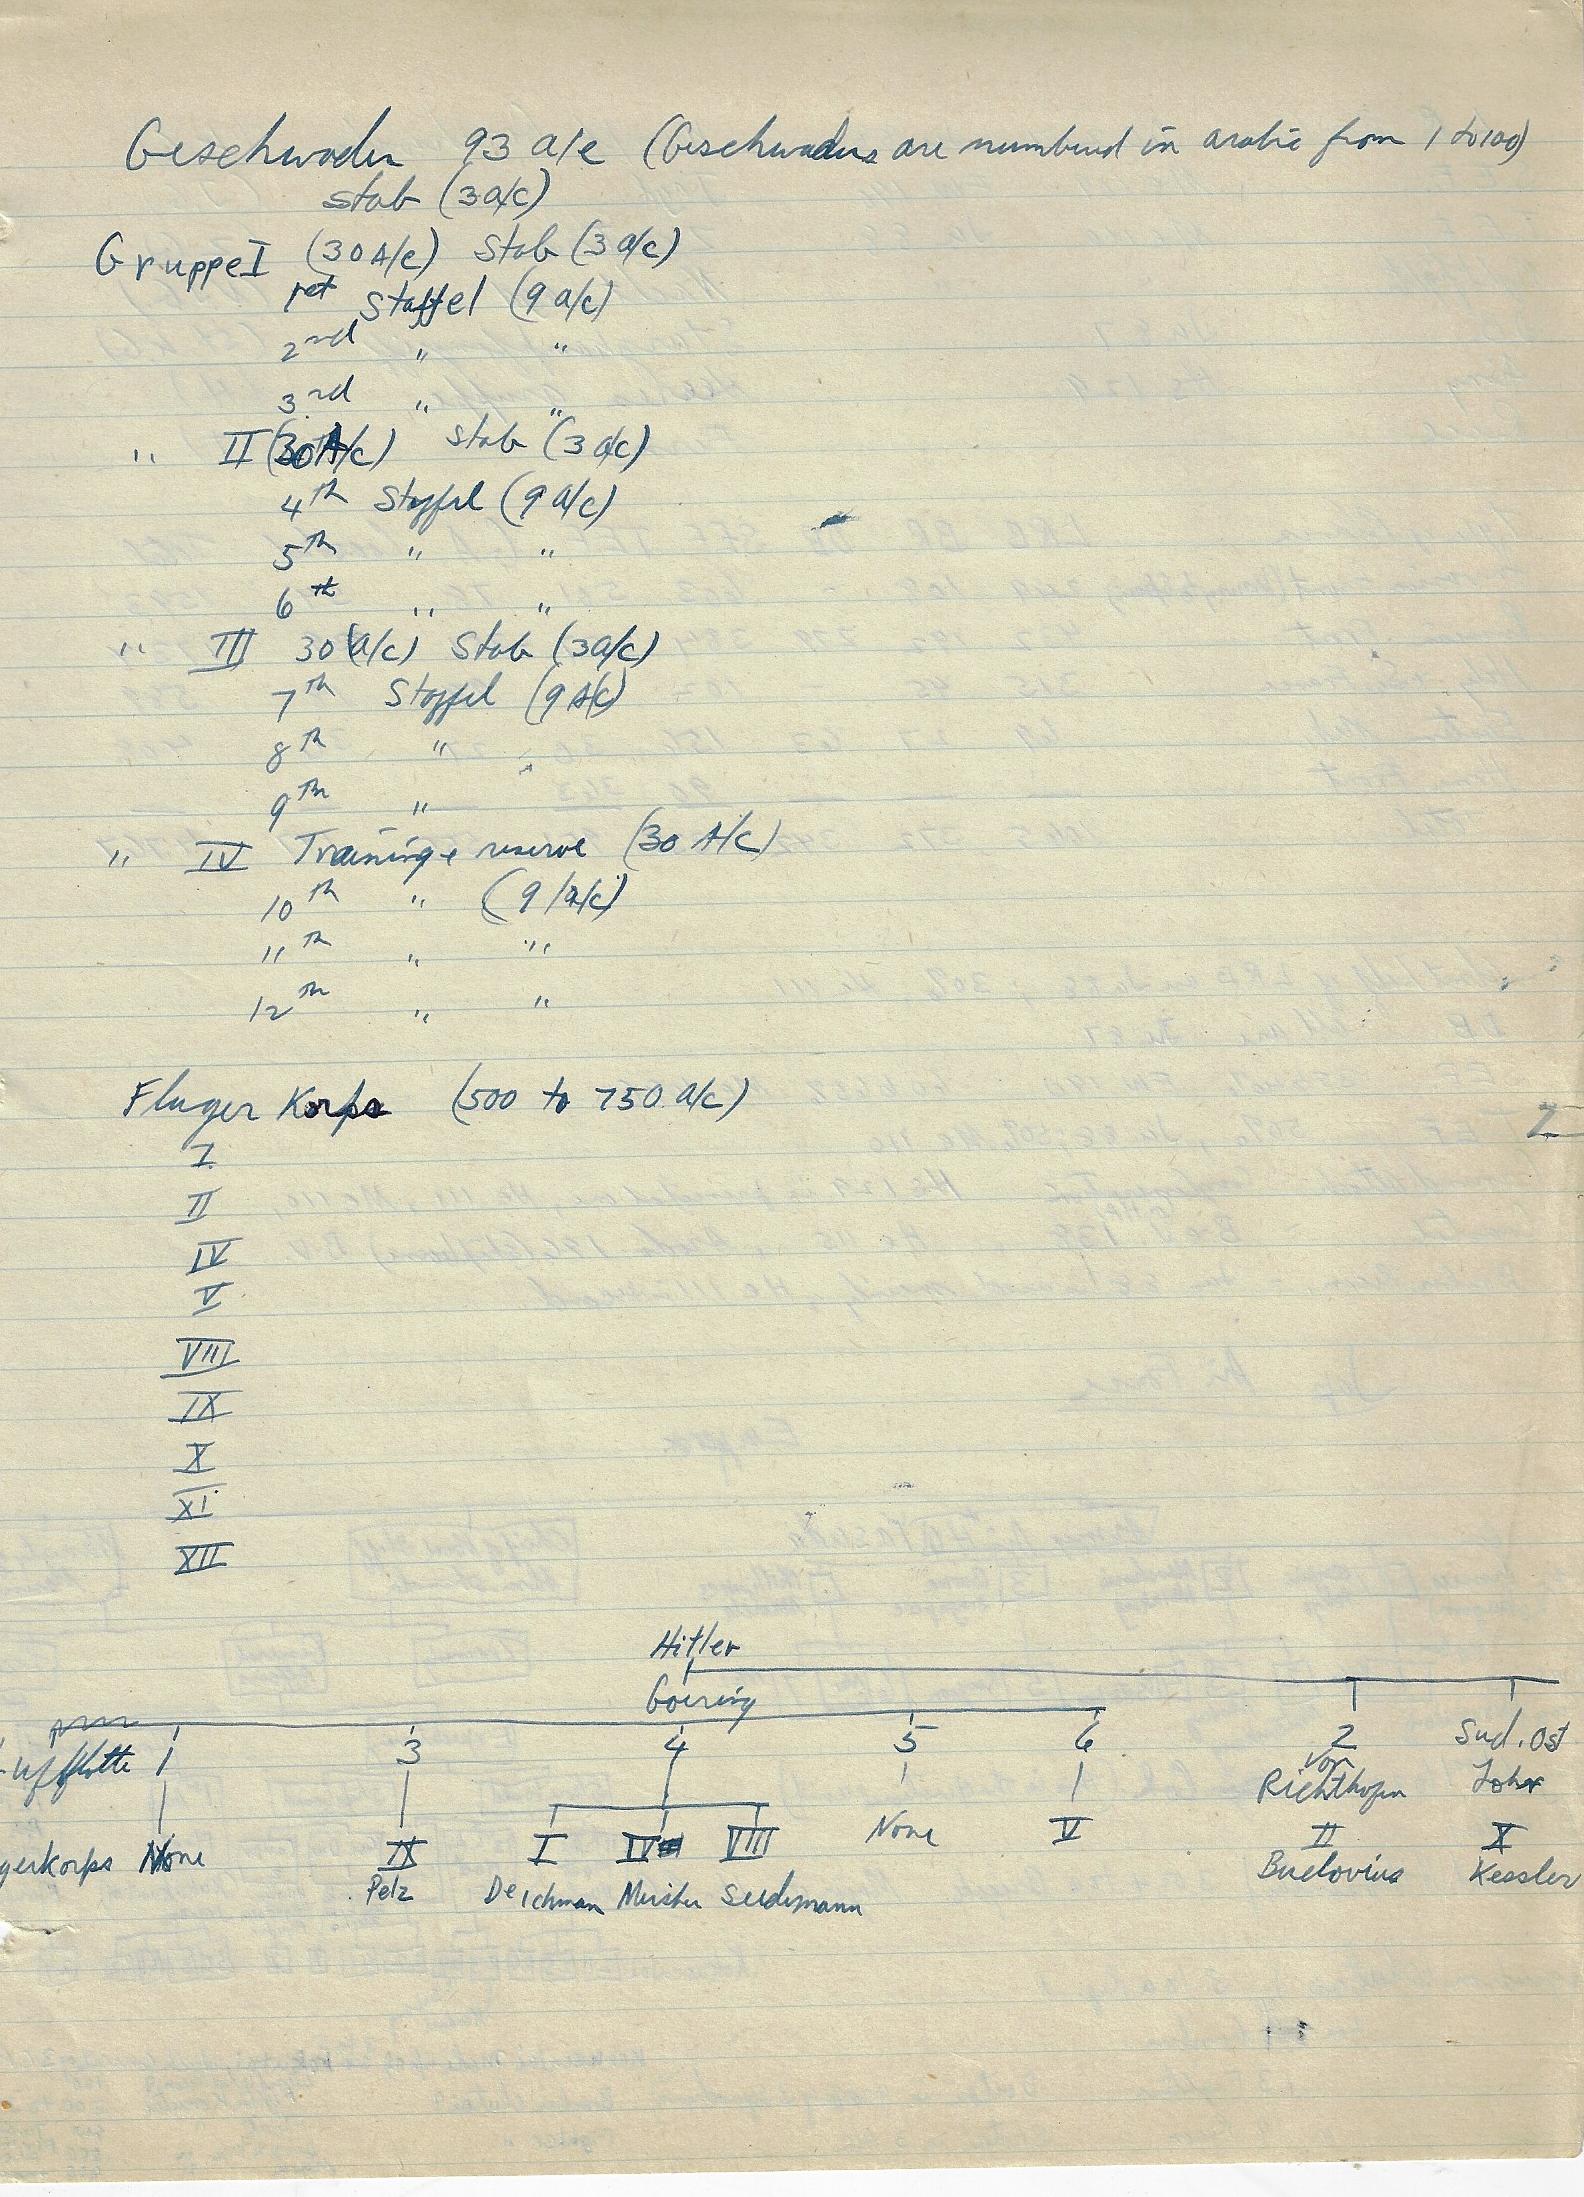 Geschwader 93 a/c (Geschwaders are numbered in arabic from 1 to 100)
Stab (3 a/c)
Gruppe I (30 A/c) Stab (3 a/c)
1st Staffel (9 a/c)
2nd " "
3rd " "
" II (30 A/c) Stab (3 a/c)
4th Staffel (9 a/c)
5th " "
6th " "
" III 30 (a/c) Stab (3 a/c)
7th Staffel (9 A/c)
8th "
9th "
" IV Training + reserve (30 A/c)
10th " (9 /a/c)
11th " "
12th " "
Fluger Korps (500 to 750 a/c)
I
II
IV
V
VIII
IX
X
XI
XII
Hitler
Goering
Luftflotte 1 3 4 5 6 2 Sud. Ost
von
Richthofen Lohr
gerkorps None IX I IV VIII None V II X
Pelz Deichman Meister Seidemann Buelovius Kessler